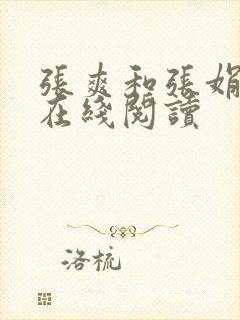 張爽和張娟
在綫閱讀
洛梳